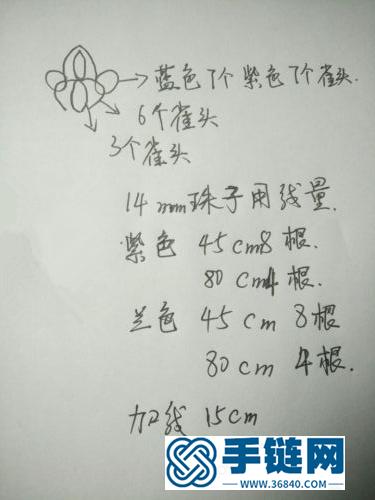 蓝色7个紫色7个雀头.
6个雀头
3个雀头
14mm珠子用线量.
紫色 45cm8根.
80cm4根.
兰色 45cm 8根
80cm 4根.
加线 15cm
手链网
www.36840.com